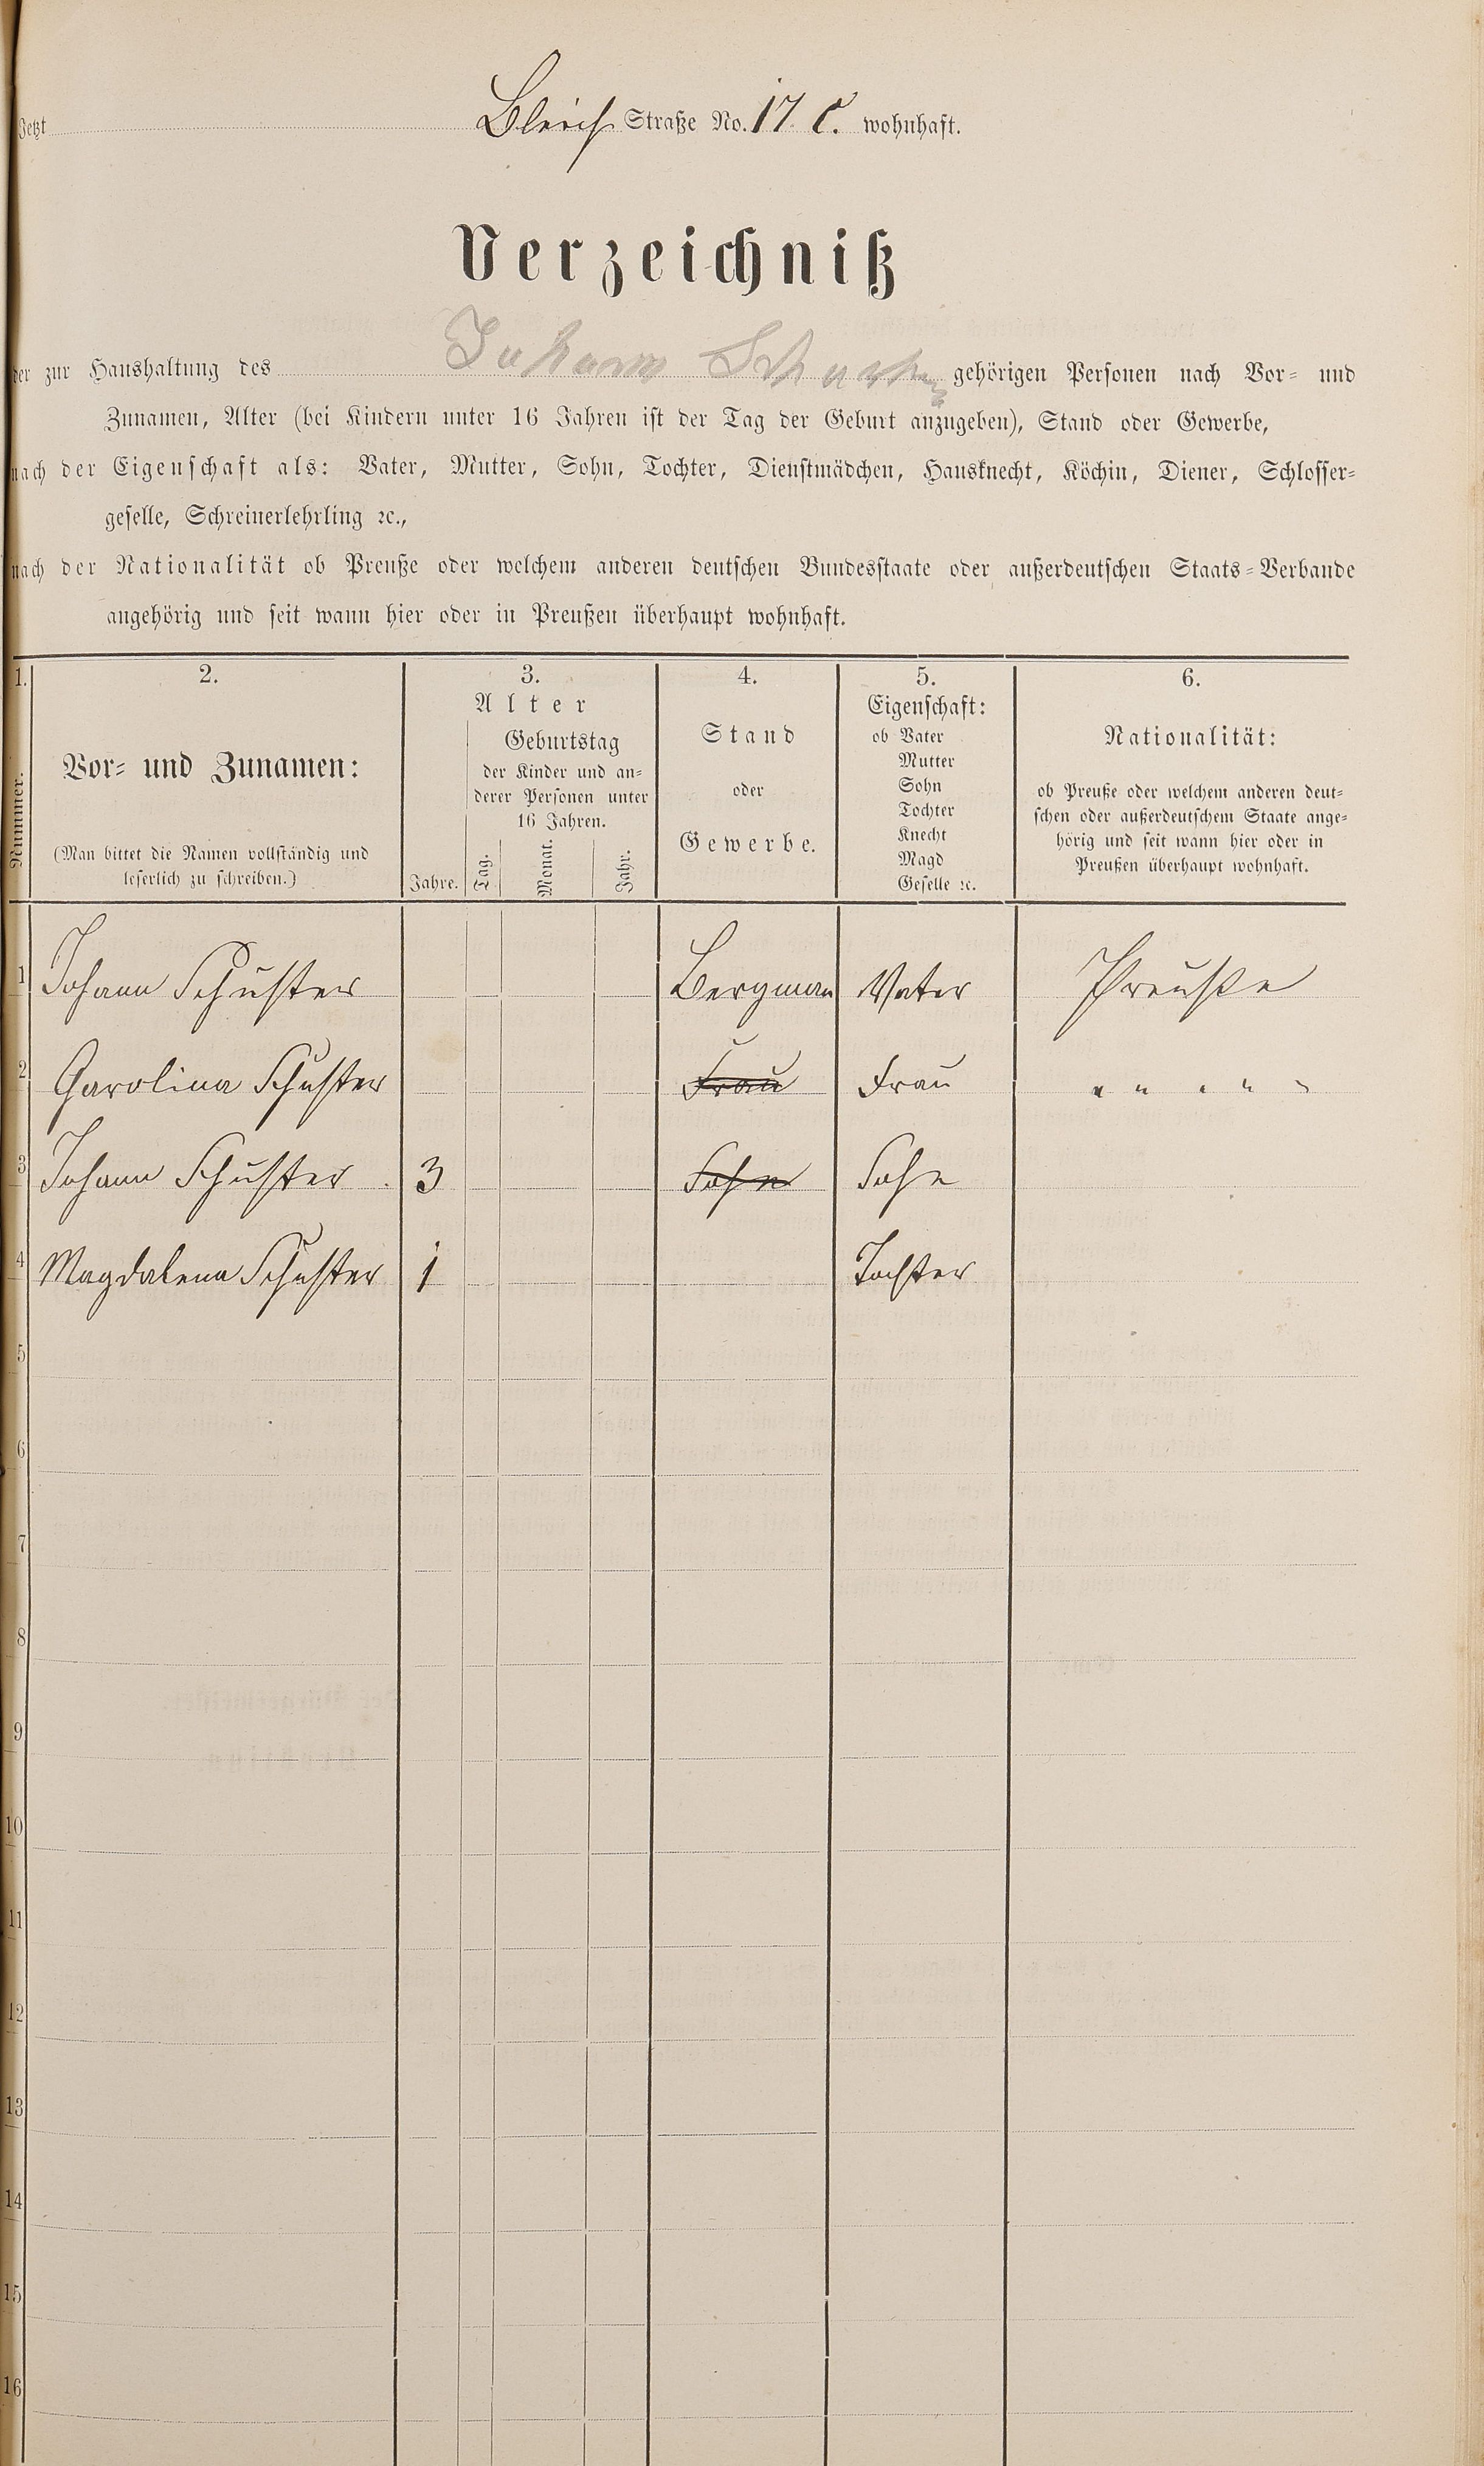 Jetzt Bleich Straße No. 17 C. wohnhaft.
Verzeichniß
der zur Haushaltung des Johann Schuster gehörigen Personen nach Vor- und
Zunamen, Alter (bei Kindern unter 16 Jahren ist der Tag der Geburt anzugeben), Stand oder Gewerbe,
nach der Eigenschaft als: Vater, Mutter, Sohn, Tochter, Dienstmädchen, Hausknecht, Köchin, Diener, Schlosser-
geselle, Schreinerlehrling ꝛc.,
nach der Nationalität ob Preuße oder welchem anderen deutschen Bundesstaate oder außerdeutschen Staats-Verbande
angehörig und seit wann hier oder in Preußen überhaupt wohnhaft.
1.
Nummer.
2.
Vor- und Zunamen:
(Man bittet die Namen vollständig und
leserlich zu schreiben.)
3.
Alter
Jahre.
Geburtstag
der Kinder und an-
derer Personen unter
16 Jahren.
Tag.
Monat.
Jahr.
4.
Stand
oder
Gewerbe.
5.
Eigenschaft:
ob Vater
Mutter
Sohn
Tochter
Knecht
Magd
Geselle ꝛc.
6.
Nationalität:
ob Preuße oder welchem anderen deut-
schen oder außerdeutschem Staate ange-
hörig und seit wann hier oder in
Preußen überhaupt wohnhaft.
1 Johann Schuster Bergman Vater Preuße
2 Carolina Schuster Frau Frau " " " " "
3 Johann Schuster. 3 Sohn Sohn
4 Magdalena Schuster 1 Tochter
5
6
7
8
9
10
11
12
13
14
15
16